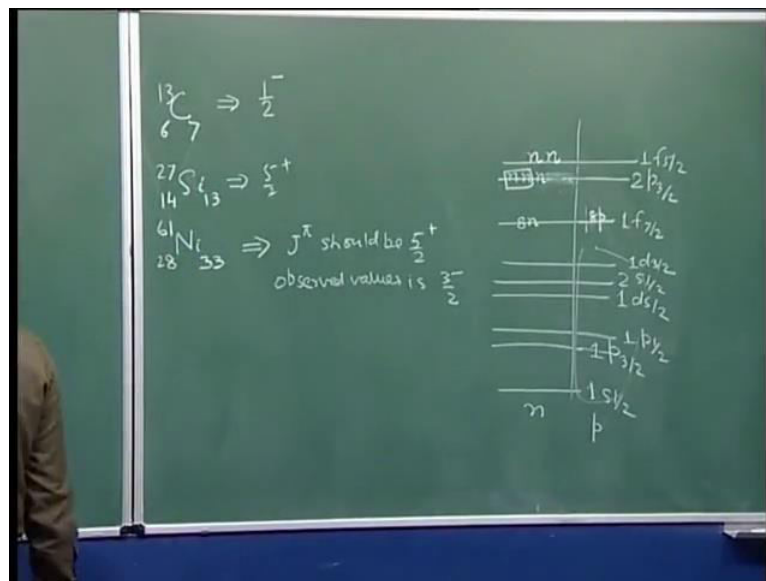 ¹³₆C₇ ⇒ 1/2⁻
²⁷₁₄Si₁₃ ⇒ 5/2⁺
⁶¹₂₈Ni₃₃ ⇒ J^π should be 5/2⁺
observed values is 3/2⁻
nn 1f5/2
nnn 2p3/2
8n 8p 1f7/2
1d3/2
2s1/2
1d5/2
1p1/2
1p3/2
1s1/2
n p